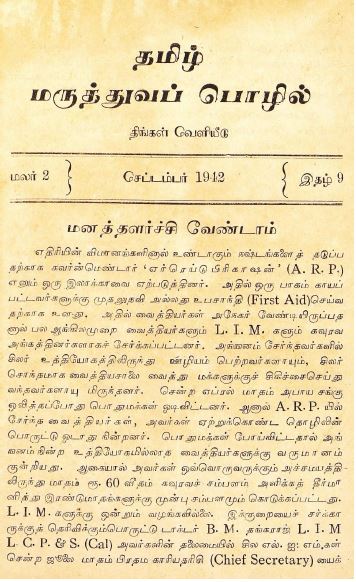 தமிழ்
மருத்துவப் பொழில்
திங்கள் வெளியீடு
மலர் 2 } செப்டம்பர் 1942 { இதழ் 9
மனத்தளர்ச்சி வேண்டாம்
எதிரியின் விமானங்களினால் உண்டாகும் நஷ்டங்களைத் தடுப்ப
தற்காக கவர்ன்மெண்டார் 'ஏர்ரெய்டுபிரிகாஷன்' (A. R. P.)
எனும் ஒரு இலாக்காவை ஏற்படுத்தினர். அதில் ஒரு பாகம் காயப்
பட்டவர்களுக்கு முதலுதவி அல்லது உபசாந்தி (First Aid)செய்வ
தற்காக உளது. அதில் வைத்தியர்கள் அநேகர் வேண்டியிருப்பத
னால் பல ஆங்கிலமுறை வைத்தியர்களும் L. I. M. களும் கவுரவ
அங்கத்தினர்களாகச் சேர்க்கப்பட்டனர். அங்ஙனம் சேர்ந்தவர்களில்
சிலர் உத்தியோகத்திலிருந்து ஊழியம் பெற்றவர்களாயும், சிலர்
சொந்தமாக வைத்தியசாலை வைத்து மக்களுக்குச் சிகிச்சைசெய்து
வந்தவர்களாயு மிருந்தனர். சென்ற ஏப்ரல் மாதம் அபாய சங்கு
ஒலித்தப்போது பொதுமக்கள் ஓடிவிட்டனர். ஆனால் A. R. P. யில்
சேர்ந்த வைத்தியர்கள், அவர்கள் ஏற்றுக்கொண்ட தொழிலின்
பொருட்டு ஓடாது நின்றனர். பொதுமக்கள் போய்விட்டதால் அங்
ஙனம்நின்ற உத்தியோகமில்லாத வைத்தியர்களுக்கு வருமானம்
குன்றியது. ஆகையால் அவர்கள் ஒவ்வொருவருக்கும் அச்சமயத்தி
லிருந்து மாதம் ரூ. 60 வீதம் கவுரவச் சம்பளம் அளிக்கத் தீர்மா
னித்து இரண்டுமாதங்களுக்கு முன்பு சம்பளமும் கொடுக்கப்பட்டது.
L. I. M. களுக்கு ஒன்றும் வழங்கவில்லை. இக்குறையைச் சர்க்கா
ருக்குத் தெரிவிக்கும்பொருட்டு டாக்டர் B. M. தங்கராஜ் L. I. M
L. C. P. & S. (Cal) அவர்களின் தலைமையில் சில எல். ஐ; எம்,கள்
சென்ற ஜூலை மாதம் பிரதம காரியதரிசி (Chief Secretary) யைக்